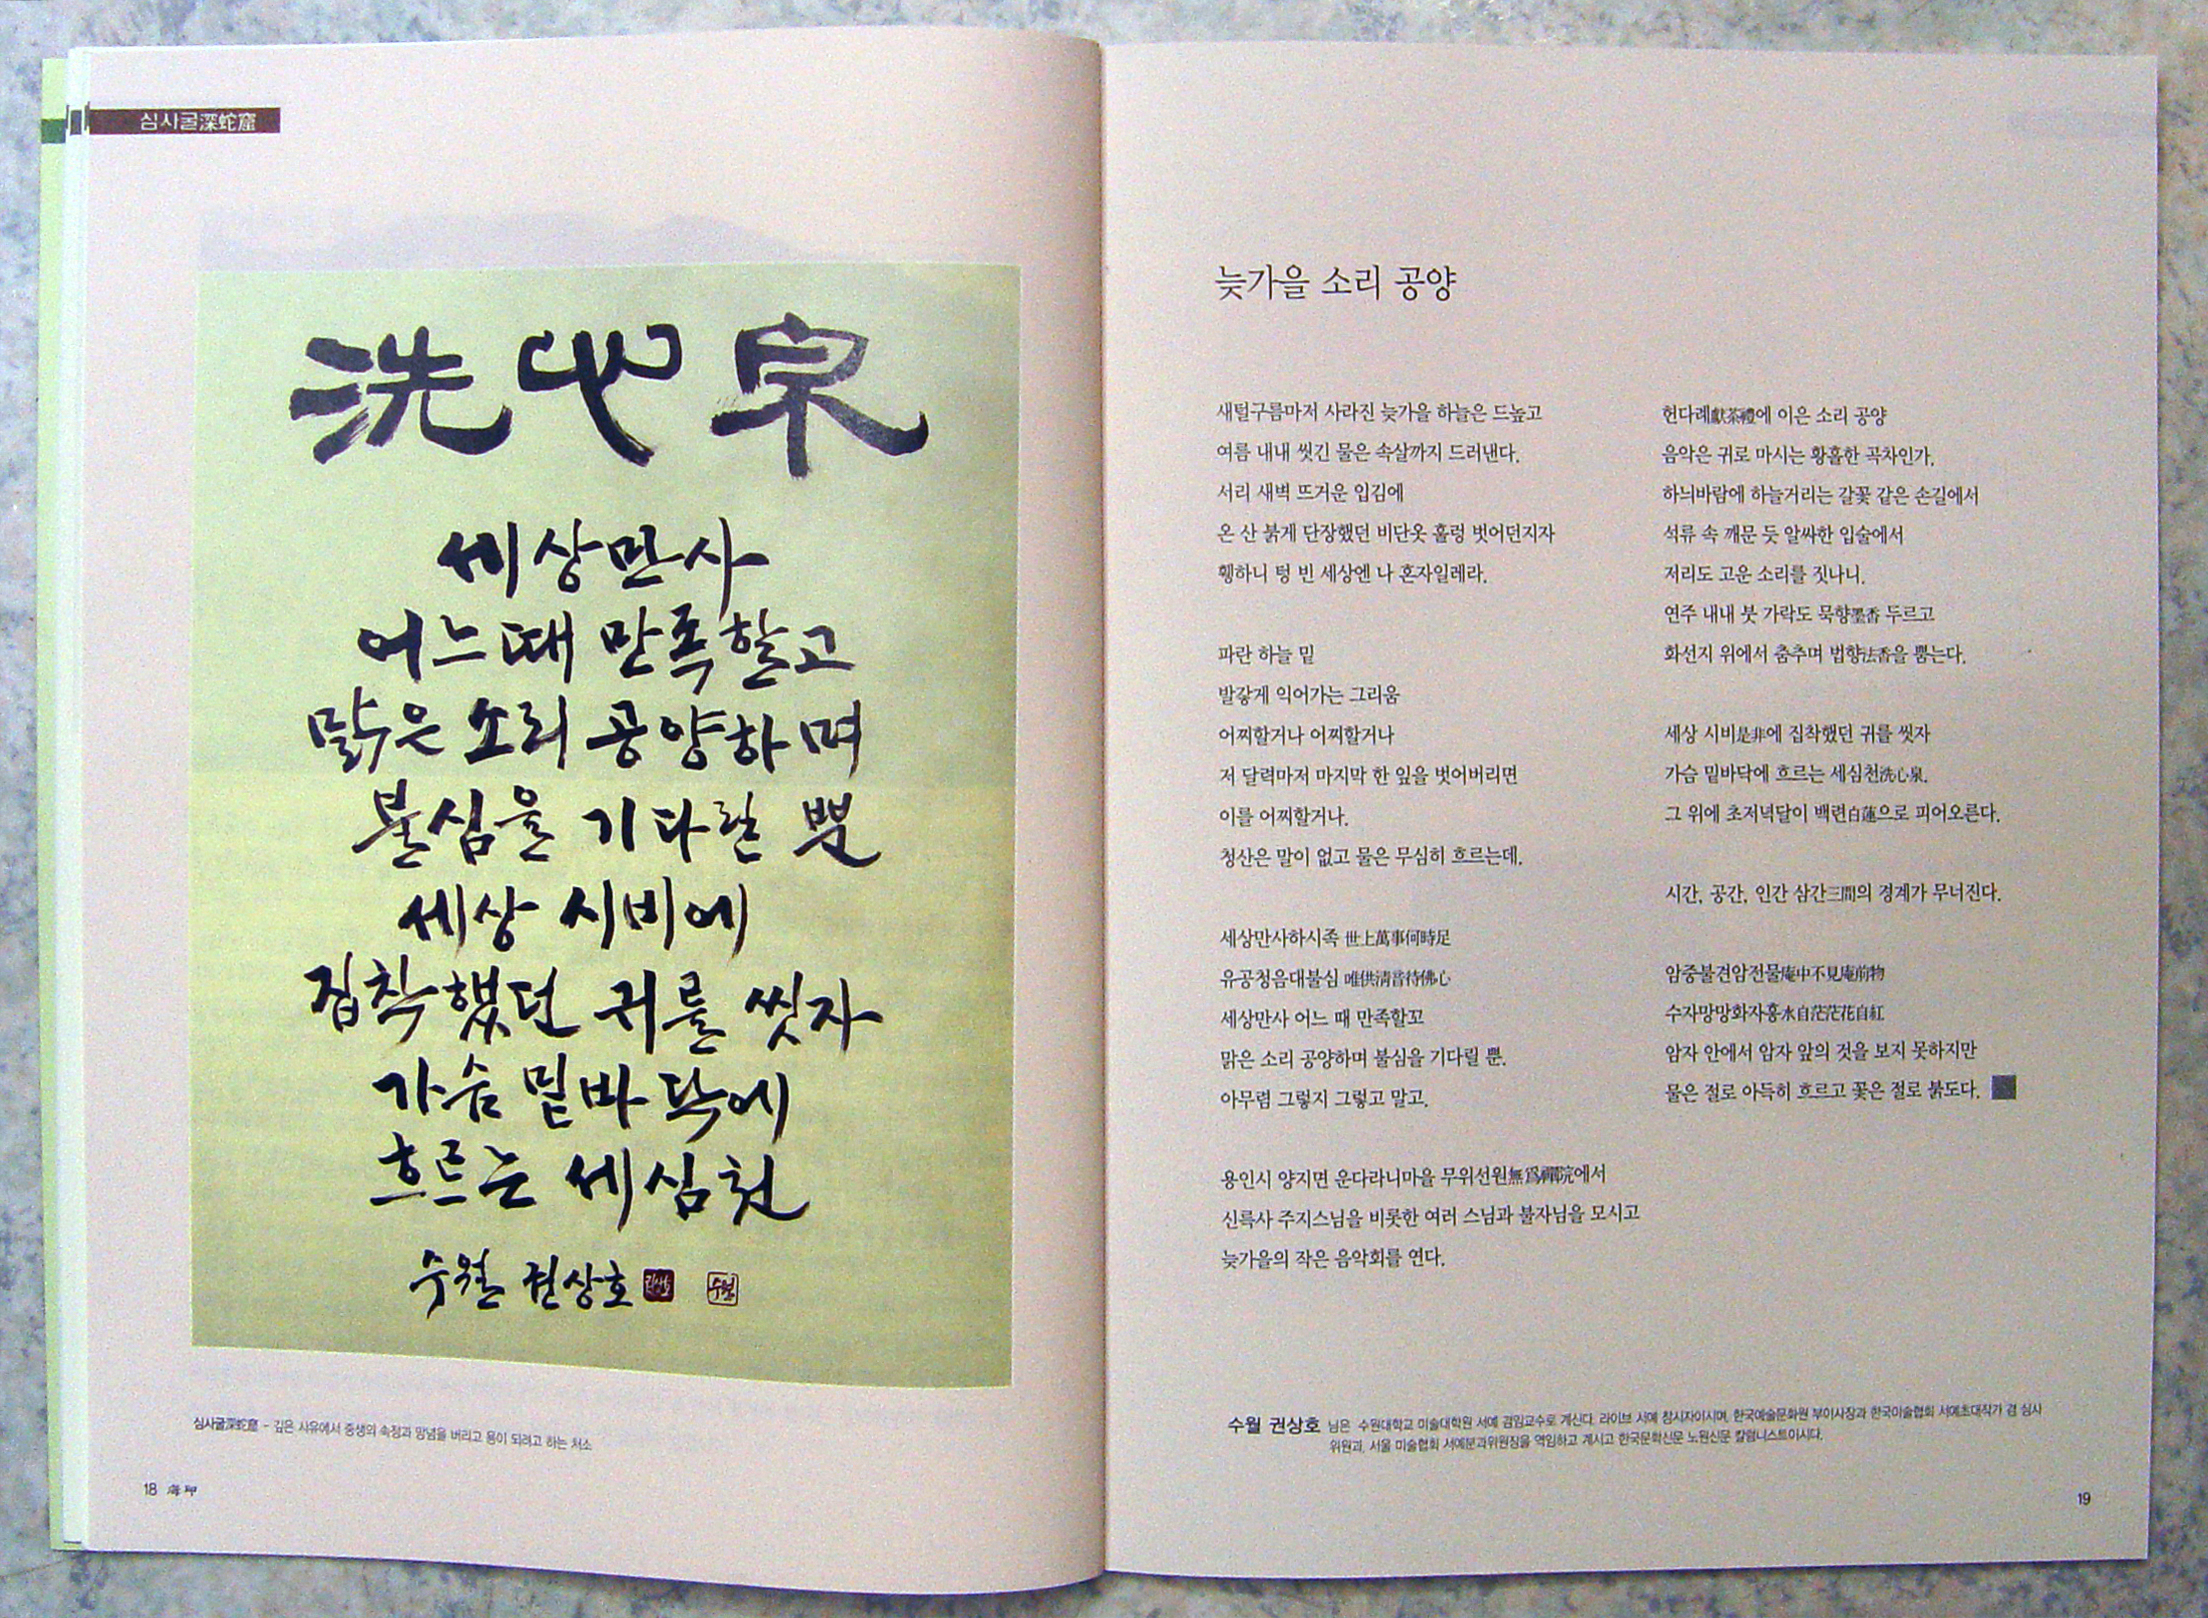 심사굴深蛇窟
洗心泉
세상만사
어느때 만족할고
맑은 소리 공양하며
불심을 기다릴 뿐
세상 시비에
집착했던 귀를 씻자
가슴 밑바닥에
흐르는 세심천
수월 권상호
수월
심사굴深蛇窟 - 깊은 사유에서 중생의 속정과 망념을 버리고 용이 되려고 하는 처소
18 海印
늦가을 소리 공양
새털구름마저 사라진 늦가을 하늘은 드높고
여름 내내 씻긴 물은 속살까지 드러낸다.
서리 새벽 뜨거운 입김에
온 산 붉게 단장했던 비단옷 훌렁 벗어던지자
휑하니 텅 빈 세상엔 나 혼자일레라.
파란 하늘 밑
발갛게 익어가는 그리움
어찌할거나 어찌할거나
저 달력마저 마지막 한 잎을 벗어버리면
이를 어찌할거나.
청산은 말이 없고 물은 무심히 흐르는데.
세상만사하시족 世上萬事何時足
유공청음대불심 唯供淸音待佛心
세상만사 어느 때 만족할꼬
맑은 소리 공양하며 불심을 기다릴 뿐.
아무렴 그렇지 그렇고 말고.
용인시 양지면 운다라니마을 무위선원無爲禪院에서
신륵사 주지스님을 비롯한 여러 스님과 불자님을 모시고
늦가을의 작은 음악회를 연다.
헌다례獻茶禮에 이은 소리 공양
음악은 귀로 마시는 황홀한 곡차인가.
하늬바람에 하늘거리는 갈꽃 같은 손길에서
석류 속 깨문 듯 알싸한 입술에서
저리도 고운 소리를 짓나니.
연주 내내 붓 가락도 묵향墨香 두르고
화선지 위에서 춤추며 법향法香을 뿜는다.
세상 시비是非에 집착했던 귀를 씻자
가슴 밑바닥에 흐르는 세심천洗心泉.
그 위에 초저녁달이 백련白蓮으로 피어오른다.
시간, 공간, 인간 삼간三間의 경계가 무너진다.
암중불견암전물庵中不見庵前物
수자망망화자홍水自茫茫花自紅
암자 안에서 암자 앞의 것을 보지 못하지만
물은 절로 아득히 흐르고 꽃은 절로 붉도다.
수월 권상호 님은 수원대학교 미술대학원 서예 겸임교수로 계신다. 라이브 서예 창시자이시며, 한국예술문화원 부이사장과 한국미술협회 서예초대작가 겸 심사
위원과, 서울 미술협회 서예분과위원장을 역임하고 계시고 한국문학신문 노원신문 칼럼니스트이시다.
19